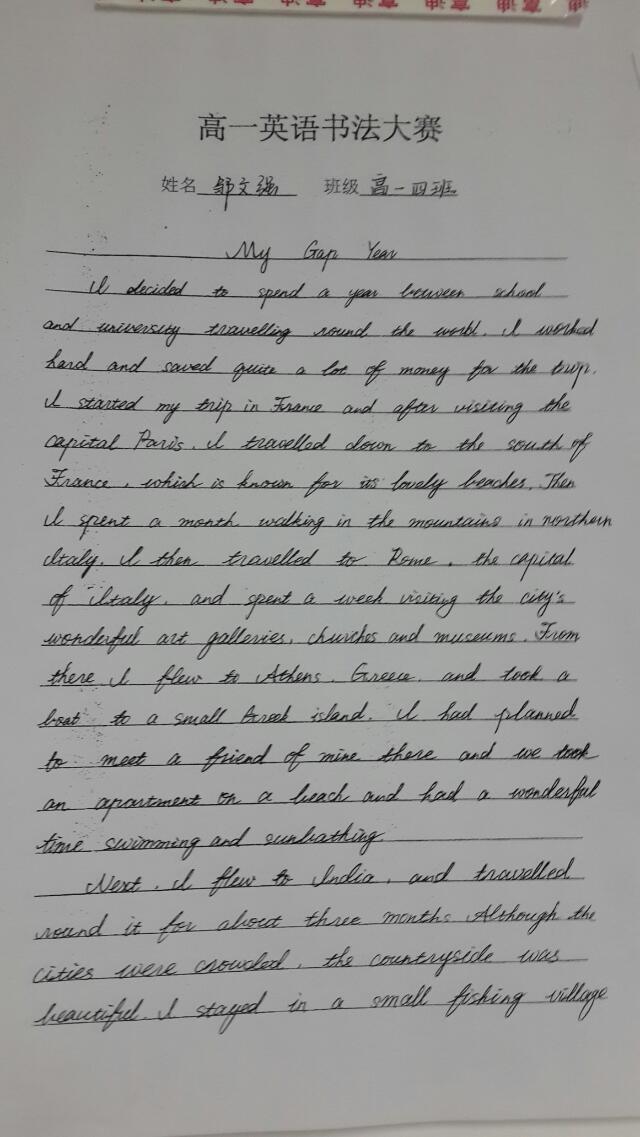 高一英语书法大赛
姓名 邹文强 班级 高一四班
My Gap Year
I decided to spend a year between school
and university travelling round the world. I worked
hard and saved quite a lot of money for the trip.
I started my trip in France and after visiting the
capital Paris, I travelled down to the south of
France, which is known for its lovely beaches. Then
I spent a month walking in the mountains in northern
Italy. I then travelled to Rome, the capital
of Italy, and spent a week visiting the city's
wonderful art galleries, churches and museums. From
there I flew to Athens, Greece, and took a
boat to a small Greek island. I had planned
to meet a friend of mine there and we took
an apartment on a beach and had a wonderful
time swimming and sunbathing.
Next, I flew to India, and travelled
round it for about three months. Although the
cities were crowded, the countryside was
beautiful. I stayed in a small fishing village